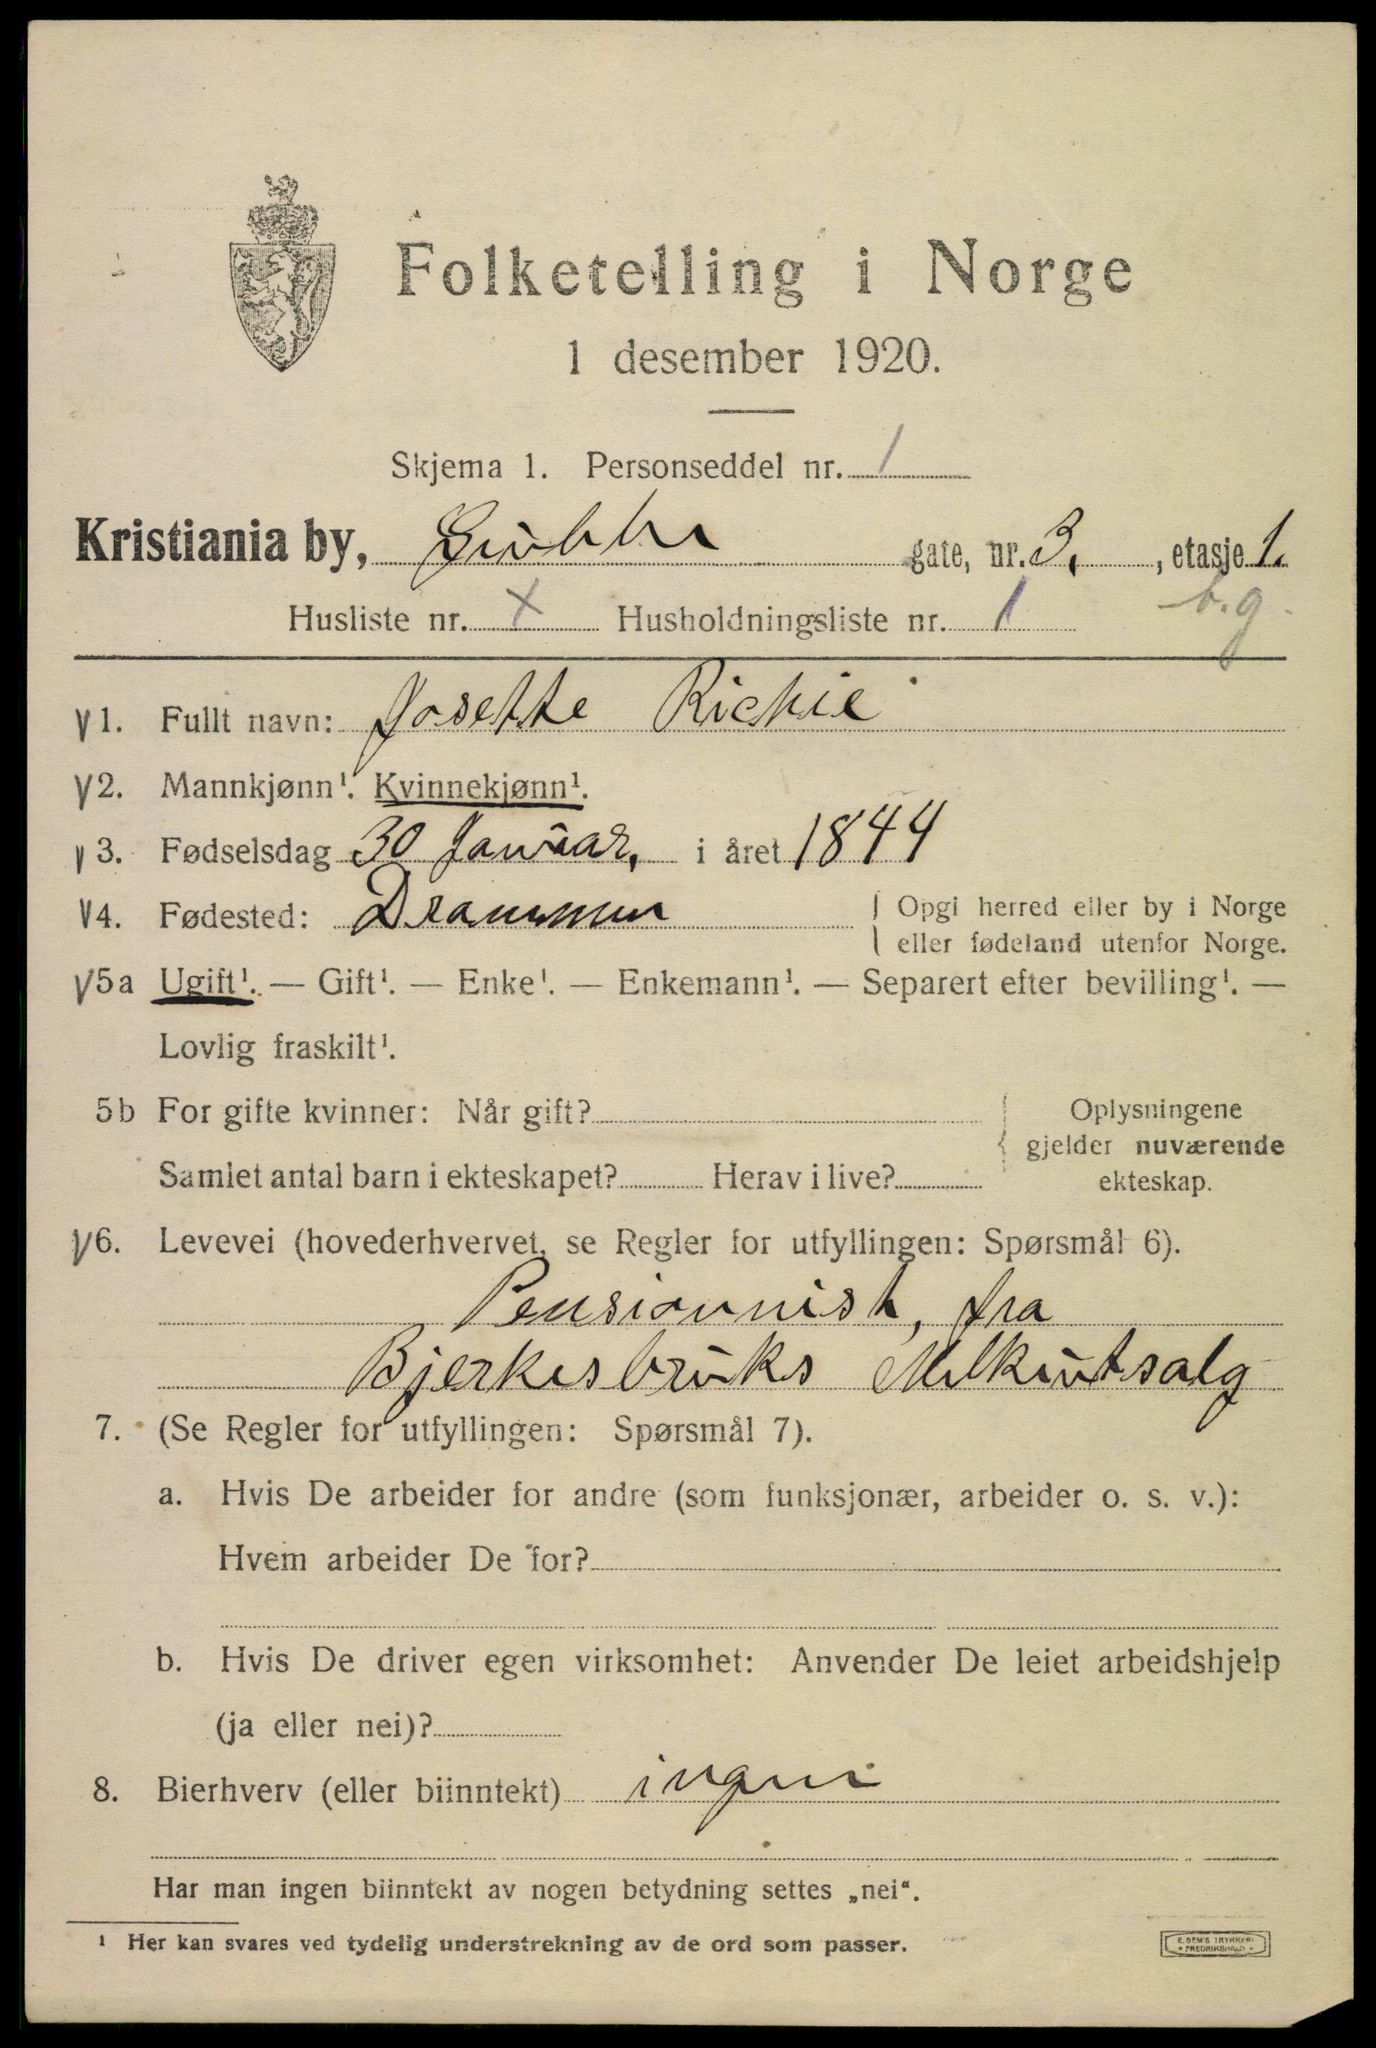 Folketelling i Norge
1 desember 1920.
Skjema 1. Personseddel nr. 1
Kristiania by, Grubbe gate, nr. 3, , etasje 1.
Husliste nr. X Husholdningsliste nr. 1 b.g.
1. Fullt navn: Josette Richie
2. Mannkjønn¹. Kvinnekjønn¹.
3. Fødselsdag 30 Januar, i året 1844
4. Fødested: Drammen { Opgi herred eller by i Norge
eller fødeland utenfor Norge.
5a Ugift¹. — Gift¹. — Enke¹. — Enkemann¹. — Separert efter bevilling¹. —
Lovlig fraskilt¹.
5b For gifte kvinner: Når gift? { Oplysningene
gjelder nuværende
Samlet antal barn i ekteskapet? Herav i live? ekteskap.
6. Levevei (hovederhvervet, se Regler for utfyllingen: Spørsmål 6).
Pensionnist, fra
Bjerkesbruks Melkeutsalg
7. (Se Regler for utfyllingen: Spørsmål 7).
a. Hvis De arbeider for andre (som funksjonær, arbeider o. s. v.):
Hvem arbeider De for?
b. Hvis De driver egen virksomhet: Anvender De leiet arbeidshjelp
(ja eller nei)?
8. Bierhverv (eller biinntekt) ingen
Har man ingen biinntekt av nogen betydning settes „nei".
¹ Her kan svares ved tydelig understrekning av de ord som passer.
E. SEM'S TRYKKERI
• FREDRIKSHALD •